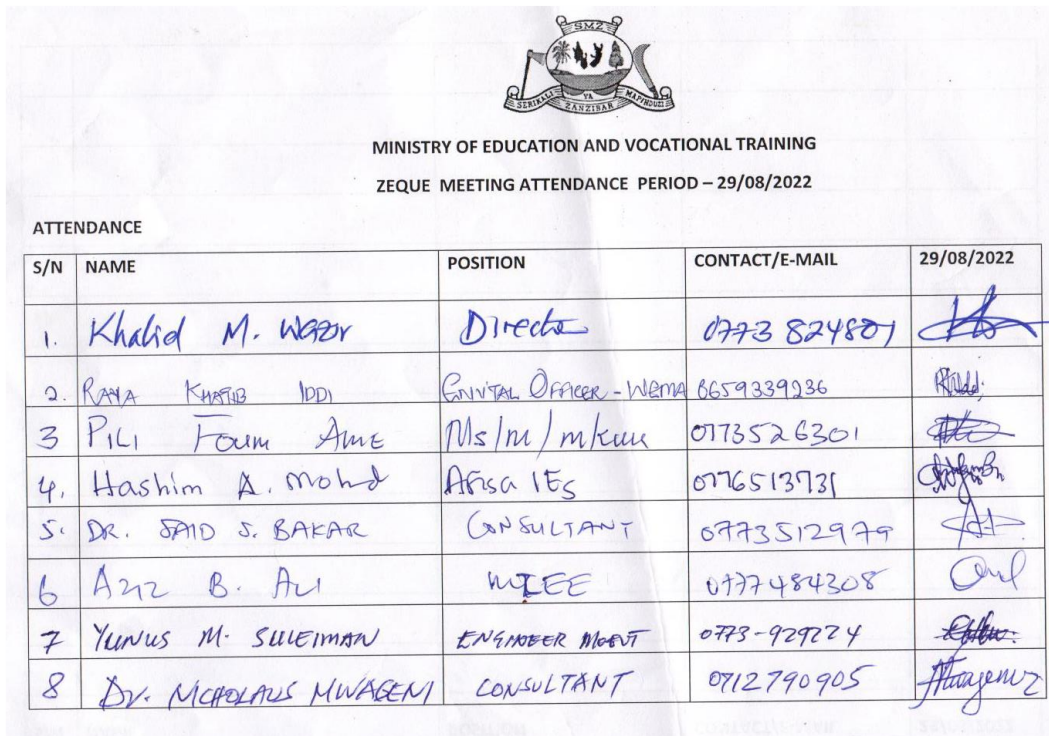 SMZ
SERIKALI YA MAPINDUZI
ZANZIBAR
MINISTRY OF EDUCATION AND VOCATIONAL TRAINING
ZEQUE MEETING ATTENDANCE PERIOD – 29/08/2022
ATTENDANCE
S/N NAME POSITION CONTACT/E-MAIL 29/08/2022
1. Khalid M. Wazir Director 0773 824807
2. RAYA KHATIB IDDI OFFICER - WEMA 0659339236
3 PILI FOUM AME Ms/m/mkuu 0773526301
4. Hashim A. Mohd Afisa IEs 0776513731
5. DR. SAID S. BAKAR CONSULTANT 0773512979
6 AZIZ B. ALI MLEE 0777484308
7 YUNUS M. SULEIMAN ENGINEER MOEVT 0773-929224
8 Dr. NICHOLAUS MWAGENI CONSULTANT 0712790905